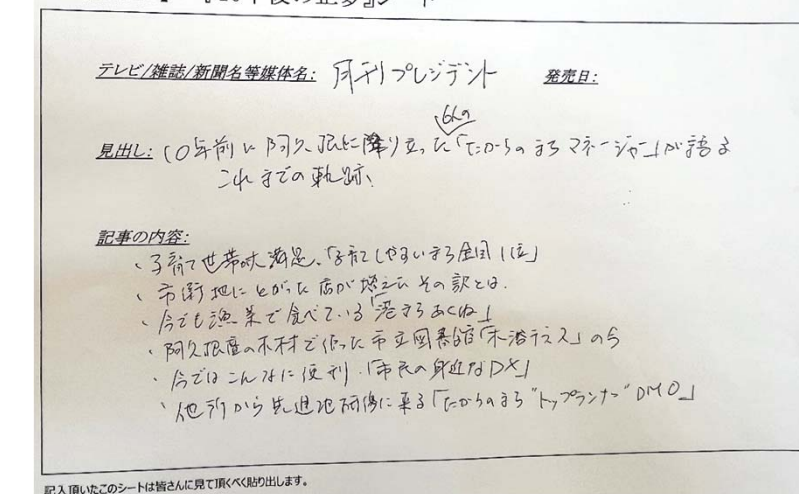 テレビ/雑誌/新聞名等媒体名: 月刊プレジデント 発売日:
6人の
見出し: 10年前に阿久根に降り立った「たからのまちマネージャー」が語る
これまでの軌跡、
記事の内容:
、子育て世帯大満足、「子育てしやすいまち全国1位」
、市街地にとがった店が増えたその訳とは、
、今でも漁業で食べている「港まちあくね」
、阿久根産の木材で作った市立図書館「木浴テラス」の今
、今ではこんなに便利、「市民の身近なDX」
、他所から先進地研修に来る「たからのまち"トップランナー"DMO」
記入頂いたこのシートは皆さんに見て頂くべく貼り出します。